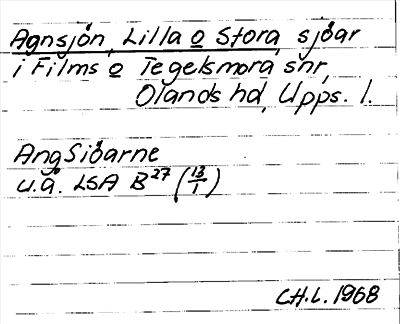 Agnsjön, Lilla o Stora, sjöar
i Films o Tegelsmora snr,
Olands hd, Upps. l.
Ang Siöarne
u.å. LSA B²⁷ (13/1)
CH.L. 1968